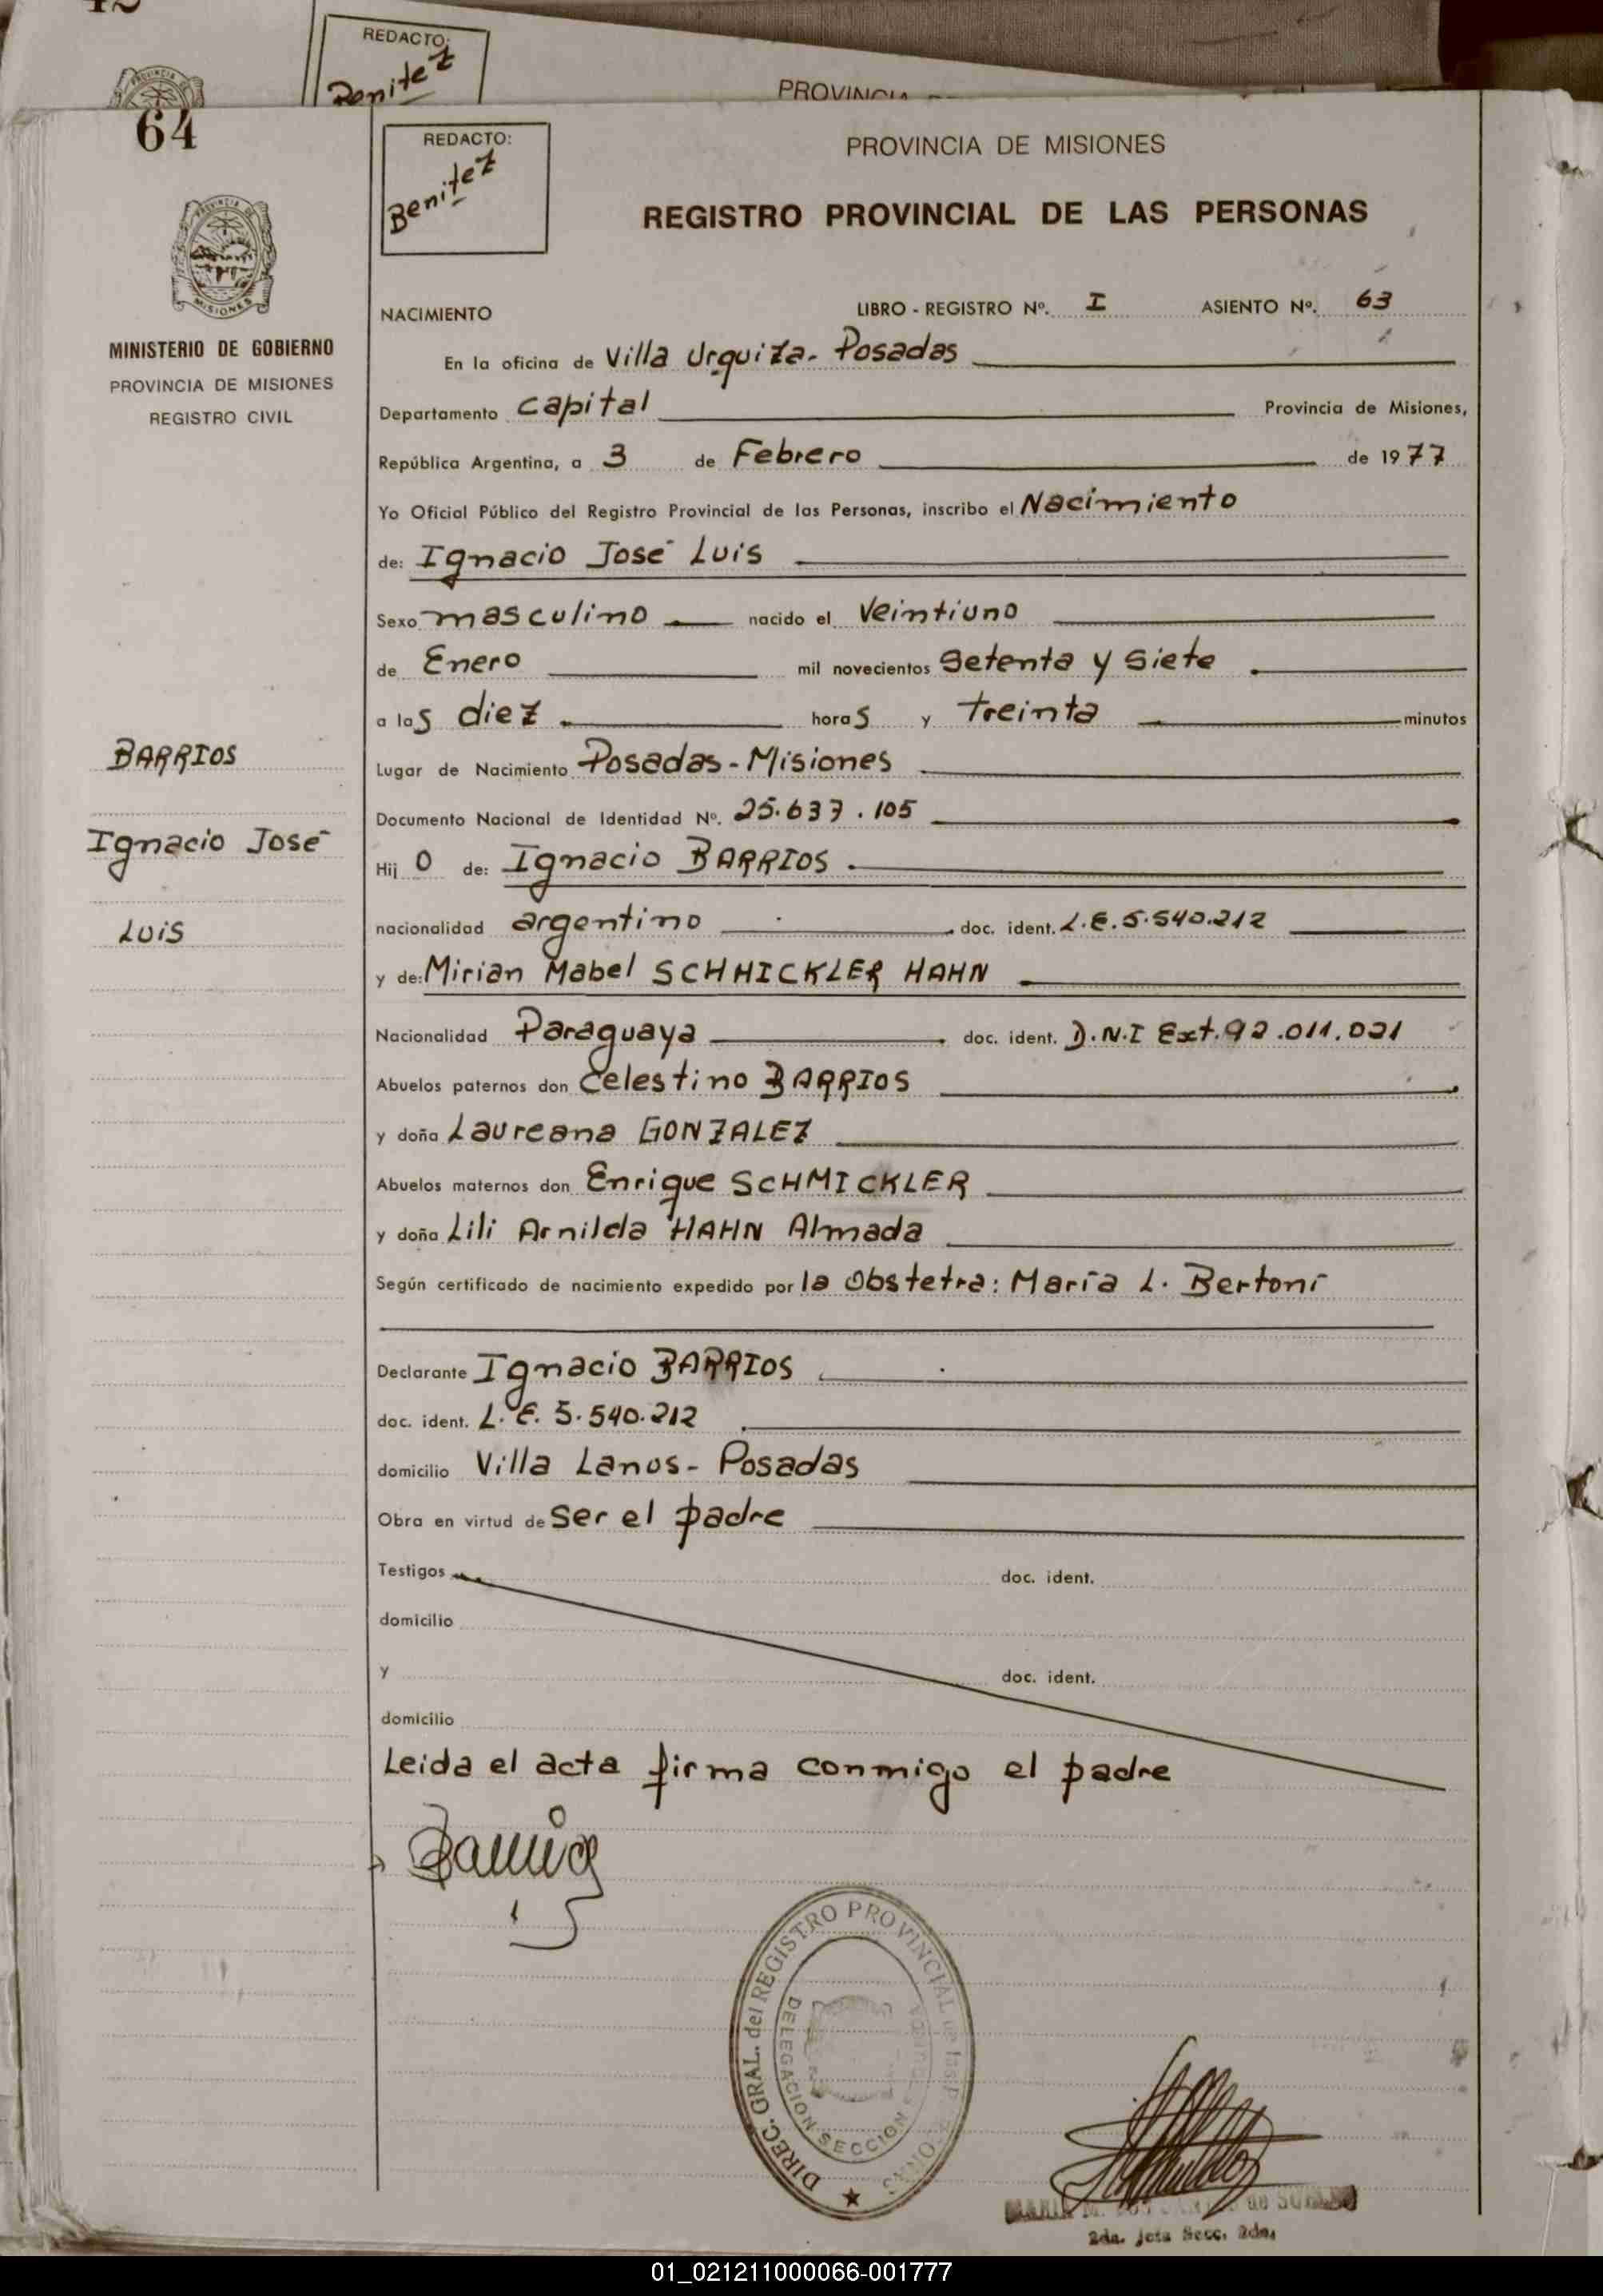 REDACTO:
Benitez
PROVINCIA
64
REDACTO:
Benitez
PROVINCIA DE MISIONES
REGISTRO PROVINCIAL DE LAS PERSONAS
MINISTERIO DE GOBIERNO
PROVINCIA DE MISIONES
REGISTRO CIVIL
NACIMIENTO LIBRO - REGISTRO Nº. I ASIENTO Nº. 63
En la oficina de Villa Urquiza - Posadas
Departamento Capital Provincia de Misiones,
República Argentina, a 3 de Febrero de 1977
Yo Oficial Público del Registro Provincial de las Personas, inscribo el Nacimiento
de: Ignacio José Luis
Sexo masculino nacido el Veintiuno
de Enero mil novecientos Setenta y Siete
a las diez horas y treinta minutos
BARRIOS
Ignacio José
Luis
Lugar de Nacimiento Posadas - Misiones
Documento Nacional de Identidad Nº. 25.637.105
Hijo de: Ignacio BARRIOS.
nacionalidad argentino doc. ident. L.E. 5.540.212
y de: Mirian Mabel SCHMICKLER HAHN
Nacionalidad Paraguaya doc. ident. D.N.I Ext. 92.011.021
Abuelos paternos don Celestino BARRIOS
y doña Laureana GONZALEZ
Abuelos maternos don Enrique SCHMICKLER
y doña Lili Arnilda HAHN Almada
Según certificado de nacimiento expedido por la Obstetra: María L. Bertoni
Declarante Ignacio BARRIOS
doc. ident. L.E. 5.540.212
domicilio Villa Lanus - Posadas
Obra en virtud de Ser el padre
Testigos doc. ident.
domicilio
y doc. ident.
domicilio
Leida el acta firma conmigo el padre
DIREC. GRAL. del REGISTRO PROVINCIAL de las
DELEGACION SECCION
2da. Jefa Secc. 2da.
01_021211000066-001777